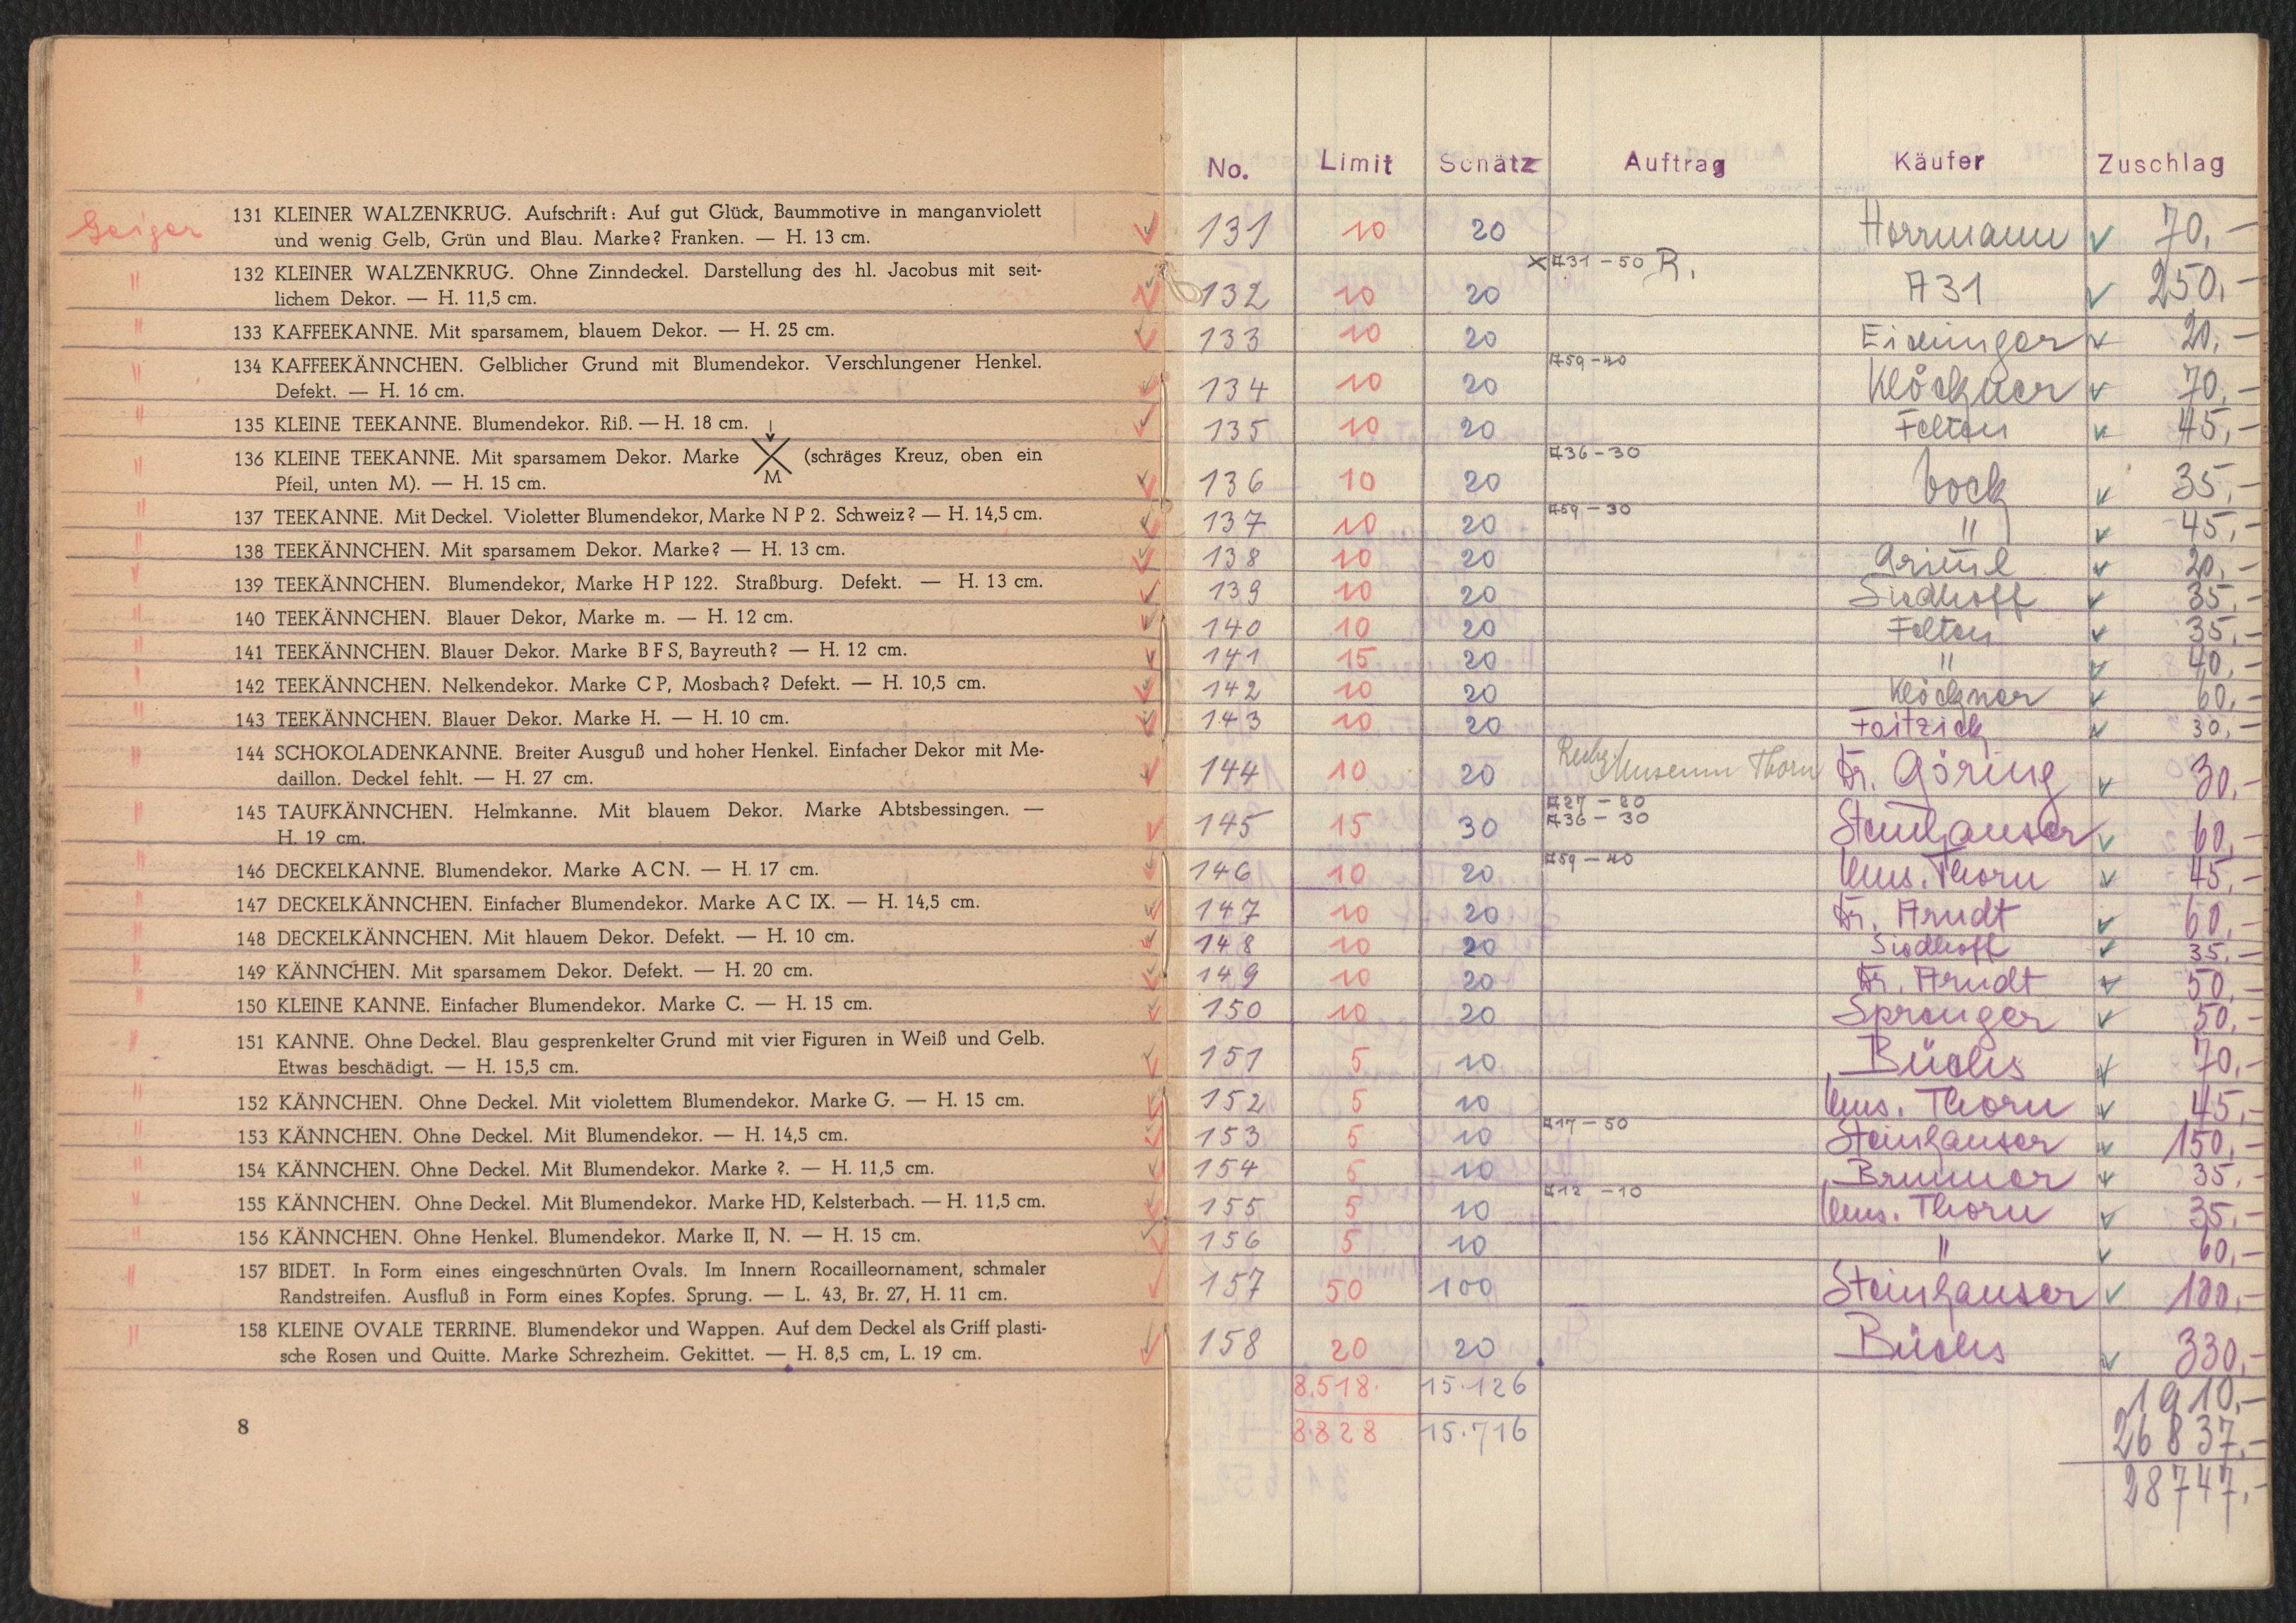 Geiger
131 KLEINER WALZENKRUG. Aufschrift: Auf gut Glück, Baummotive in manganviolett
und wenig Gelb, Grün und Blau. Marke? Franken. — H. 13 cm.
" 132 KLEINER WALZENKRUG. Ohne Zinndeckel. Darstellung des hl. Jacobus mit seit-
lichem Dekor. — H. 11,5 cm.
" 133 KAFFEEKANNE. Mit sparsamem, blauem Dekor. — H. 25 cm.
" 134 KAFFEEKÄNNCHEN. Gelblicher Grund mit Blumendekor. Verschlungener Henkel.
Defekt. — H. 16 cm.
" 135 KLEINE TEEKANNE. Blumendekor. Riß. — H. 18 cm.
" 136 KLEINE TEEKANNE. Mit sparsamem Dekor. Marke M (schräges Kreuz, oben ein
Pfeil, unten M). — H. 15 cm.
" 137 TEEKANNE. Mit Deckel. Violetter Blumendekor, Marke N P 2. Schweiz? — H. 14,5 cm.
" 138 TEEKÄNNCHEN. Mit sparsamem Dekor. Marke? — H. 13 cm.
" 139 TEEKÄNNCHEN. Blumendekor, Marke H P 122. Straßburg. Defekt. — H. 13 cm.
" 140 TEEKÄNNCHEN. Blauer Dekor, Marke m. — H. 12 cm.
" 141 TEEKÄNNCHEN. Blauer Dekor. Marke B F S, Bayreuth? — H. 12 cm.
" 142 TEEKÄNNCHEN. Nelkendekor. Marke C P, Mosbach? Defekt. — H. 10,5 cm.
" 143 TEEKÄNNCHEN. Blauer Dekor. Marke H. — H. 10 cm.
" 144 SCHOKOLADENKANNE. Breiter Ausguß und hoher Henkel. Einfacher Dekor mit Me-
daillon. Deckel fehlt. — H. 27 cm.
" 145 TAUFKÄNNCHEN. Helmkanne. Mit blauem Dekor. Marke Abtsbessingen. —
H. 19 cm.
" 146 DECKELKANNE. Blumendekor. Marke A C N. — H. 17 cm.
" 147 DECKELKÄNNCHEN. Einfacher Blumendekor. Marke A C IX. — H. 14,5 cm.
" 148 DECKELKÄNNCHEN. Mit hlauem Dekor. Defekt. — H. 10 cm.
" 149 KÄNNCHEN. Mit sparsamem Dekor. Defekt. — H. 20 cm.
" 150 KLEINE KANNE. Einfacher Blumendekor. Marke C. — H. 15 cm.
" 151 KANNE. Ohne Deckel. Blau gesprenkelter Grund mit vier Figuren in Weiß und Gelb.
Etwas beschädigt. — H. 15,5 cm.
" 152 KÄNNCHEN. Ohne Deckel. Mit violettem Blumendekor. Marke G. — H. 15 cm.
" 153 KÄNNCHEN. Ohne Deckel. Mit Blumendekor. — H. 14,5 cm.
" 154 KÄNNCHEN. Ohne Deckel. Mit Blumendekor. Marke ?. — H. 11,5 cm.
" 155 KÄNNCHEN. Ohne Deckel. Mit Blumendekor. Marke HD, Kelsterbach. — H. 11,5 cm.
" 156 KÄNNCHEN. Ohne Henkel. Blumendekor. Marke II, N. — H. 15 cm.
" 157 BIDET. In Form eines eingeschnürten Ovals. Im Innern Rocailleornament, schmaler
Randstreifen. Ausfluß in Form eines Kopfes. Sprung. — L. 43, Br. 27, H. 11 cm.
" 158 KLEINE OVALE TERRINE. Blumendekor und Wappen. Auf dem Deckel als Griff plasti-
sche Rosen und Quitte. Marke Schrezheim. Gekittet. — H. 8,5 cm, L. 19 cm.
8
No. Limit Schätz Auftrag Käufer Zuschlag
131 10 20 Horrmann 70,—
132 10 20 A31-50 R. A31 250,—
133 10 20 Eixinger 20,—
134 10 20 A59-40 Klöckner 70,—
135 10 20 Felten 45,—
136 10 20 A36-30 bock 35,—
137 10 20 A59-30 " 45,—
138 10 20 20,—
139 10 20 Siedhoff 35,—
140 10 20 Felten 35,—
141 15 20 " 40,—
142 10 20 Klöckner 60,—
143 10 20 Faitzick 30,—
144 10 20 Museum Thorn Dr. Göring 30,—
145 15 30 A27-20 A36-30 Steinhauser 60,—
146 10 20 A59-40 Mus. Thorn 45,—
147 10 20 Dr. Arndt 60,—
148 10 20 Siedhoff 35,—
149 10 20 Dr. Arndt 50,—
150 10 20 Sprenger 50,—
151 5 10 Büchs 70,—
152 5 10 Mus. Thorn 45,—
153 5 10 A17-50 Steinhauser 150,—
154 5 10 Brunner 35,—
155 5 10 A12-10 Mus. Thorn 35,—
156 5 10 " 60,—
157 50 100 Steinhauser 100,—
158 20 20 Büchs 330,—
8.518. 15.126 1910,—
8.828 15.716 26837,—
28747,—